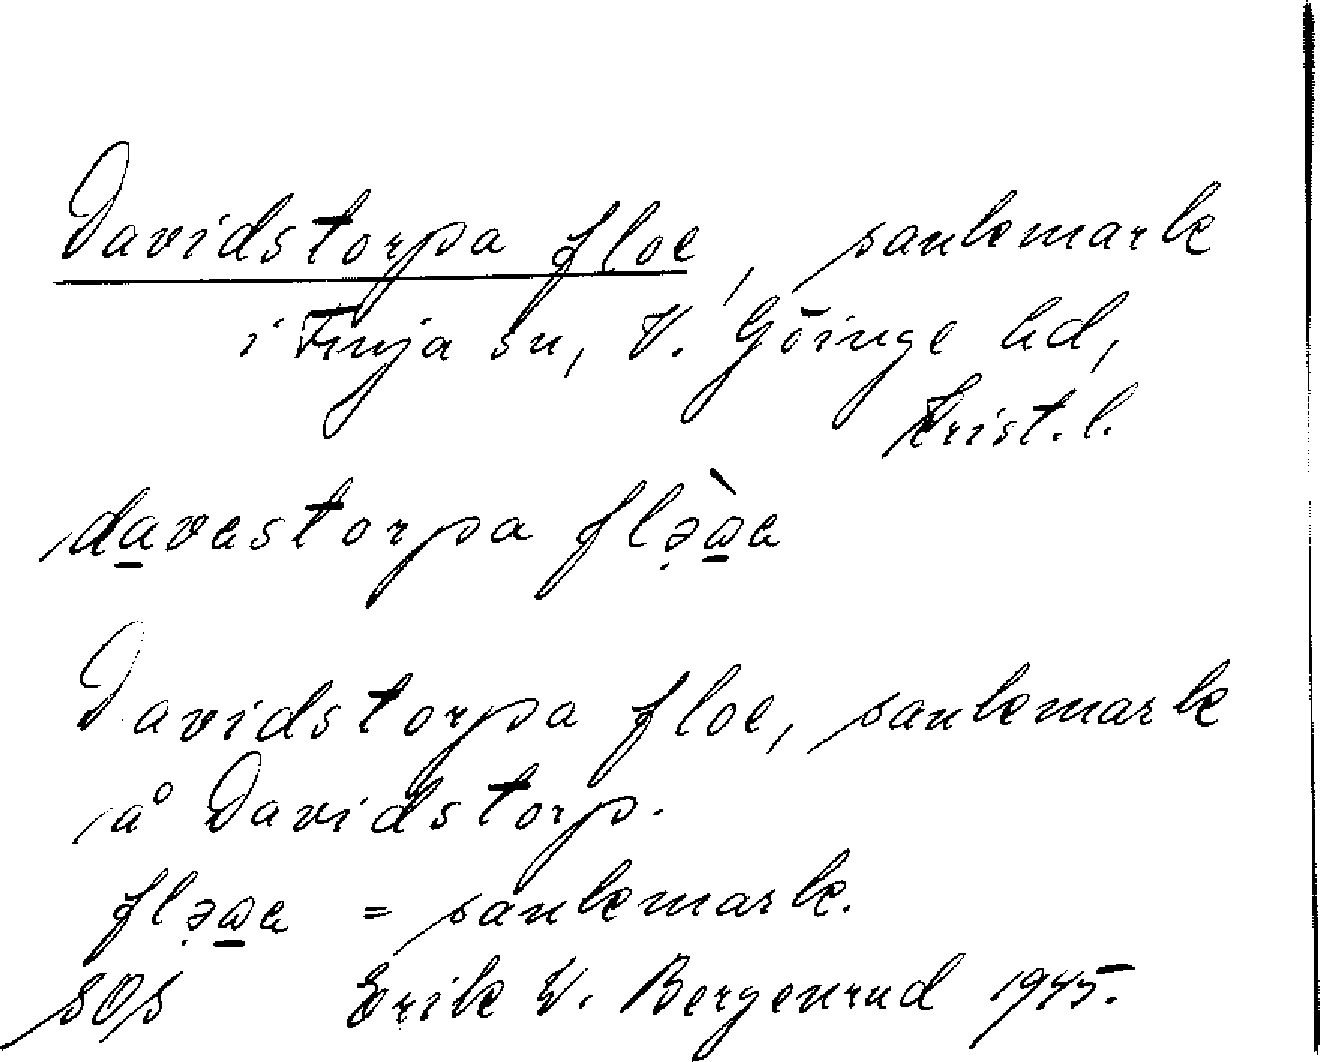 Davidstorpa floe, sankmark
i Finja sn, V. Göinge hd,
Krist. l.
da̲vastorpa fləὼ̲a
Davidstorpa floe, sankmark
å Davidstorp.
fləω̲a = sankmark.
SOS Erik W. Bergenrud 1945.